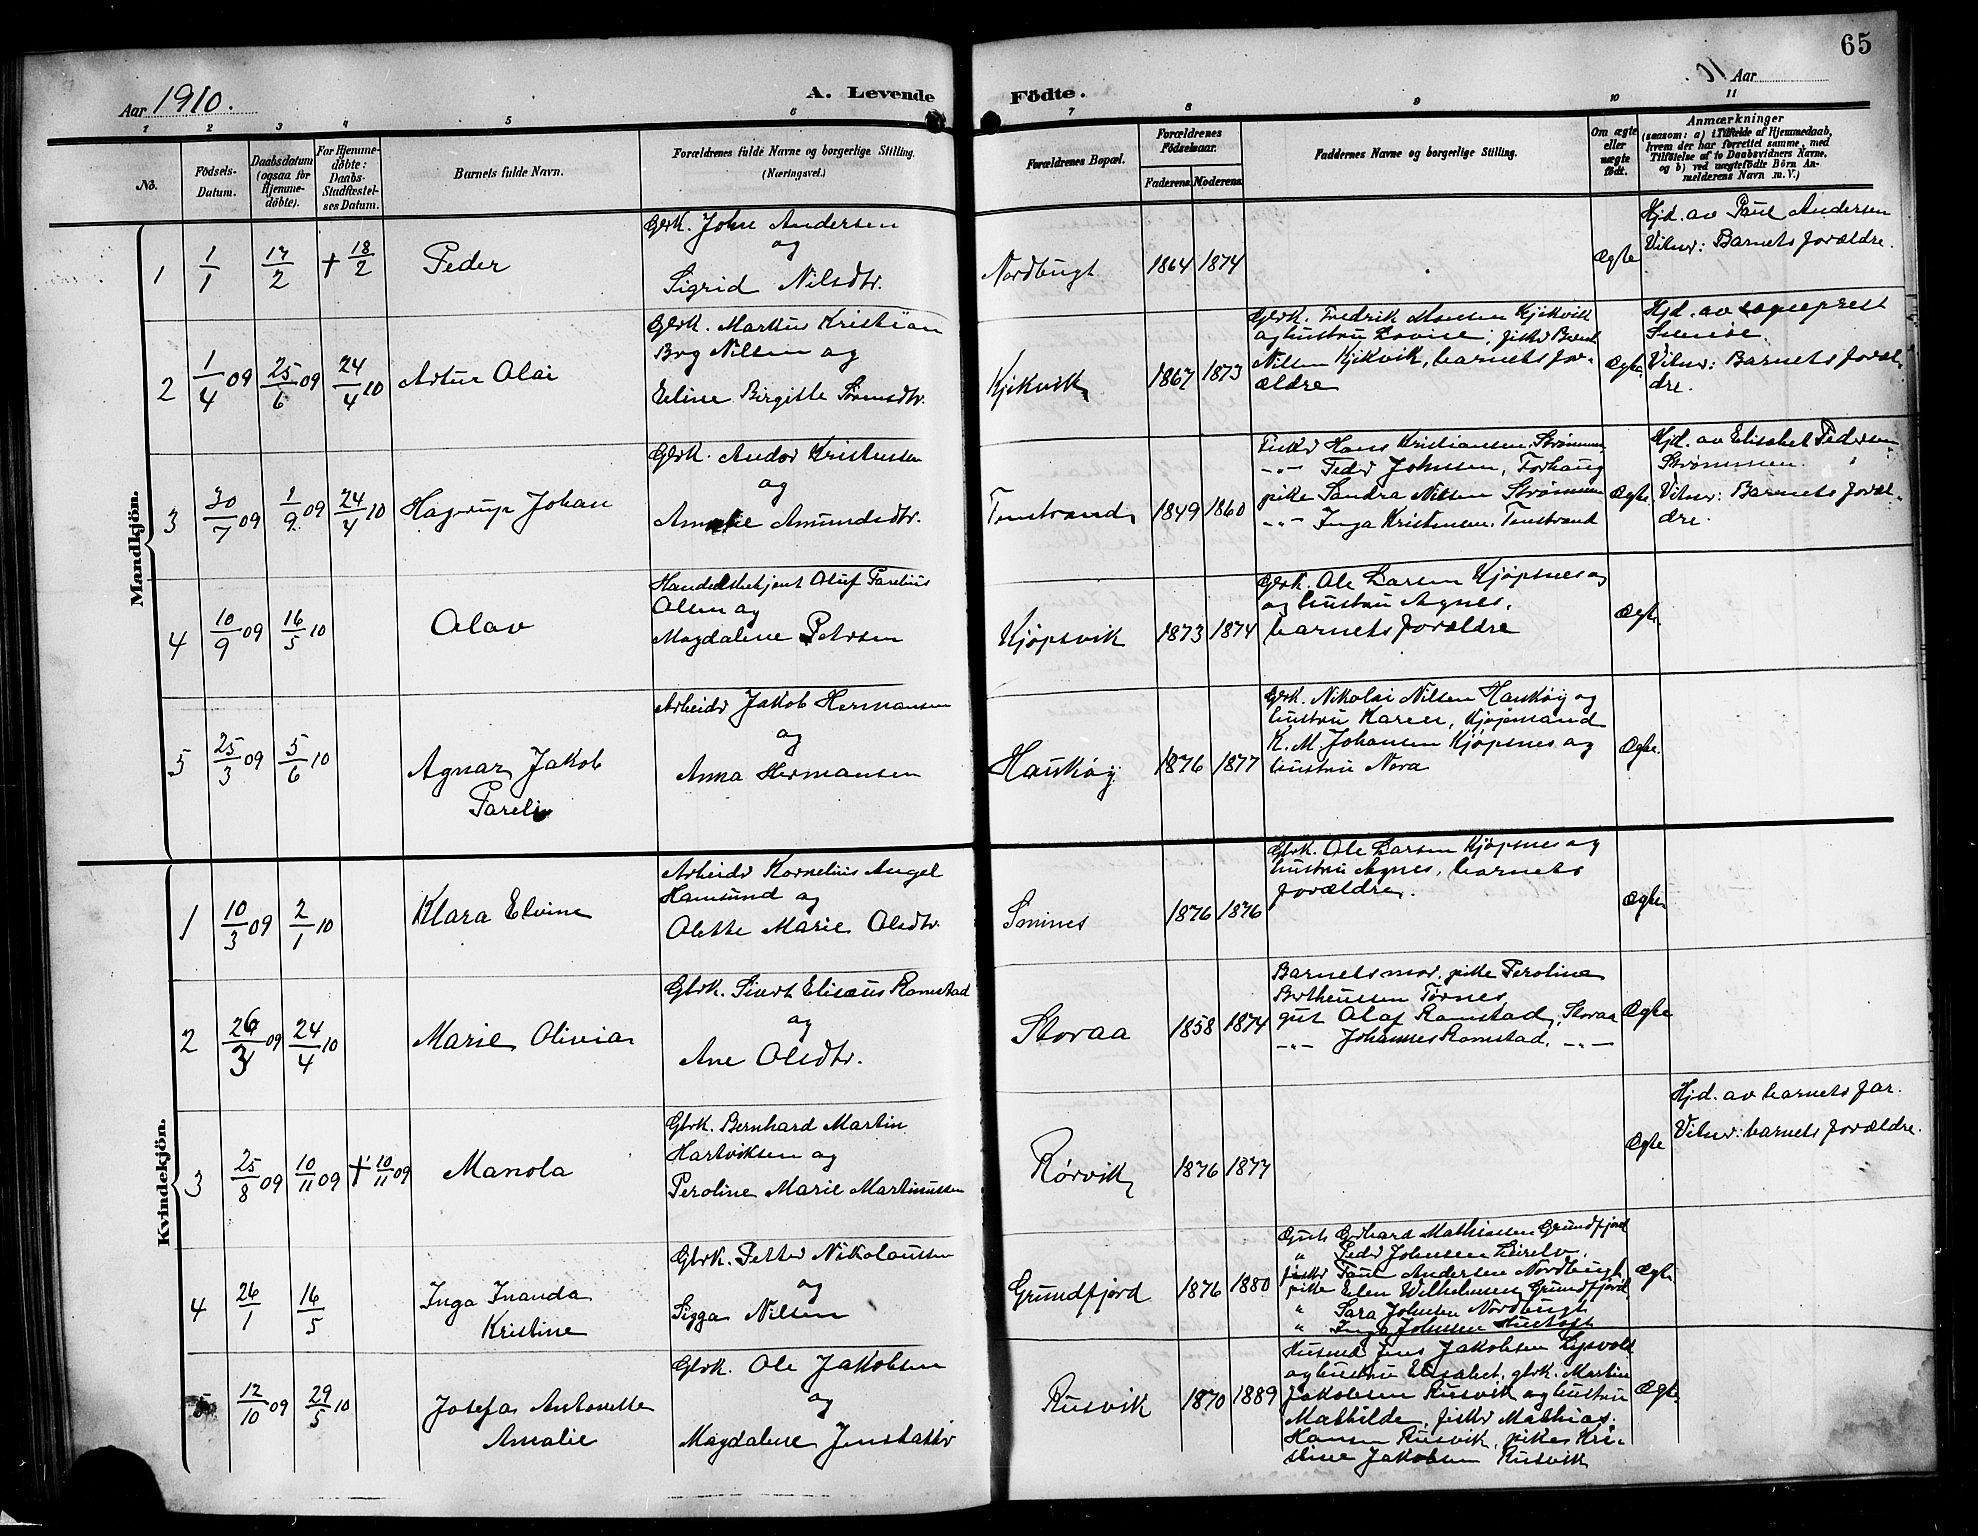 65
Aar 1910.
A. Levende
Födte.
Aar
1 2 3 4 5 6 7 8 9 10 11
No.
Födsels-
Datum.
Daabsdatum
(ogsaa for
Hjemme-
döbte).
For Hjemme-
döbte:
Daabs-
Stadfæstel-
ses Datum.
Barnets fulde Navn.
Forældrenes fulde Navne og borgerlige Stilling.
(Næringsvei.)
Forældrenes Bopæl.
Forældrenes
Födselsaar.
Faderens. Moderens.
Faddernes Navne og borgerlige Stilling.
Om ægte
eller
uægte
födt.
Anmærkninger
(saasom: a) i Tilfælde af Hjemmedaab,
hvem der har forrettet samme, med
Tilföielse af to Daabsvidners Navne,
og b) ved uægtefödte Börn An-
melderens Navn m. V.)
Mandkjön.
1
1/1
17/2
+ 18/2
Peder
Gbrk. Johse Andersen
og
Sigrid Nilsdtr.
Nordbugt
1864 1874
Ægte
Hjd. av Paul Andersen
Vitner: Barnets forældre.
2
1/4 09
25/6 09
24/4 10
Artur Olai
Gbrk. Markus Kristian
Brg Nilsen og
Eline Birgitte Sørensdtr.
Kjikvik
1867 1873
Gbrk. Fredrik Monsen Kjikvik
og hustru Lovise, fisker Bernt
Nilsen Kjikvik, barnets for-
ældre
Ægte
Hjd. av sogneprest
Vitner: Barnets foræl-
dre.
3
30/7 09
1/9 09
24/4 10
Hagerup Johan
Gbrk. Andor Kristensen
og
Amalie Amundsdtr.
Tenstrand
1849 1860
Fisker Hans Kristiansen Strømmen
-"- Peder Johnsen, Forhaug
pike Sandra Nilsen Strømmen
-"- Inga Kristensen, Tenstrand
Ægte
Hjd. av Elisabet Pedersen
Strømmen.
Vitner: Barnets foræl-
dre.
4
10/9 09
16/5 10
Olav
Handelsbetjent Oluf Parelius
Olsen og
Magdalene Petersen
Kjøpsvik
1873 1874
Gbrk. Ole Larsen Kjøpsnes og
og hustru Agnes,
barnets forældre
Ægte.
5
25/3 09
5/6 10
Agnar Jakob
Pareli
Arbeider Jakob Hermansen
og
Anna Hermansen
Haukøy
1876 1877
Gbrk. Nikolai Nilsen Haukøy og
hustru Karen, Kjøpmand
K. M Johansen Kjøpsnes og
hustru Nora
Ægte.
Kvindekjön.
1
10/3 09
2/1 10
Klara Elvine
Arbeider Kornelius Angel
Hamsund og
Olette Marie Olsdtr.
1876 1876
Gbrk. Ole Larsen Kjøpsnes og
hustru Agnes, barnets
forældre.
Ægte
2
26/3 09
24/4 10
Marie Olivia
Gbrk. Sivert Elisæus Ramstad
og
Ane Olsdtr.
Storaa
1858 1874
Barnets mor, pike Peroline
Bertheussen Tørnes,
gut Olaf Ramstad, Storaa
-"- Johannes Ramstad, -"-
Ægte
3
25/8 09
10/11 09
+ 10/11 09
Manola
Gbrk. Bernhard Martin
Hartviksen og
Peroline Marie Martinussen
Rørvik
1876 1877
Ægte
Hjd. av barnets far.
Vitner: barnets forældre.
4
26/1
16/5
Inga Inanda
Kristine
Gbrk. Petter Nikolaussen
og
Sigga Nilsen
Grundfjord
1876 1880
Gut Gerhard Mathiassen Grundfjord
" Peder Johnsen Leirelv.
fisker Paul Andersen Nordbugt
pike Elen Wilhelmsen Grundfjord
" Sara Johnsen Nordbugt
" Inga Johnsen
Ægte
5
12/10 09
29/5 10
Josefa Antonette
Amalie
Gbrk. Ole Jakobsen
og
Magdalene Jensdatter
Rusvik
1870 1889
Husmd. Jens Jakobsen Lysvold
og hustru Elisabet, gbrk. Martin
Jakobsen Rusvik og hustru
Mathilde, fisker Mathias
Hansen Rusvik, pike Kri-
stine Jakobsen Rusvik
Ægte